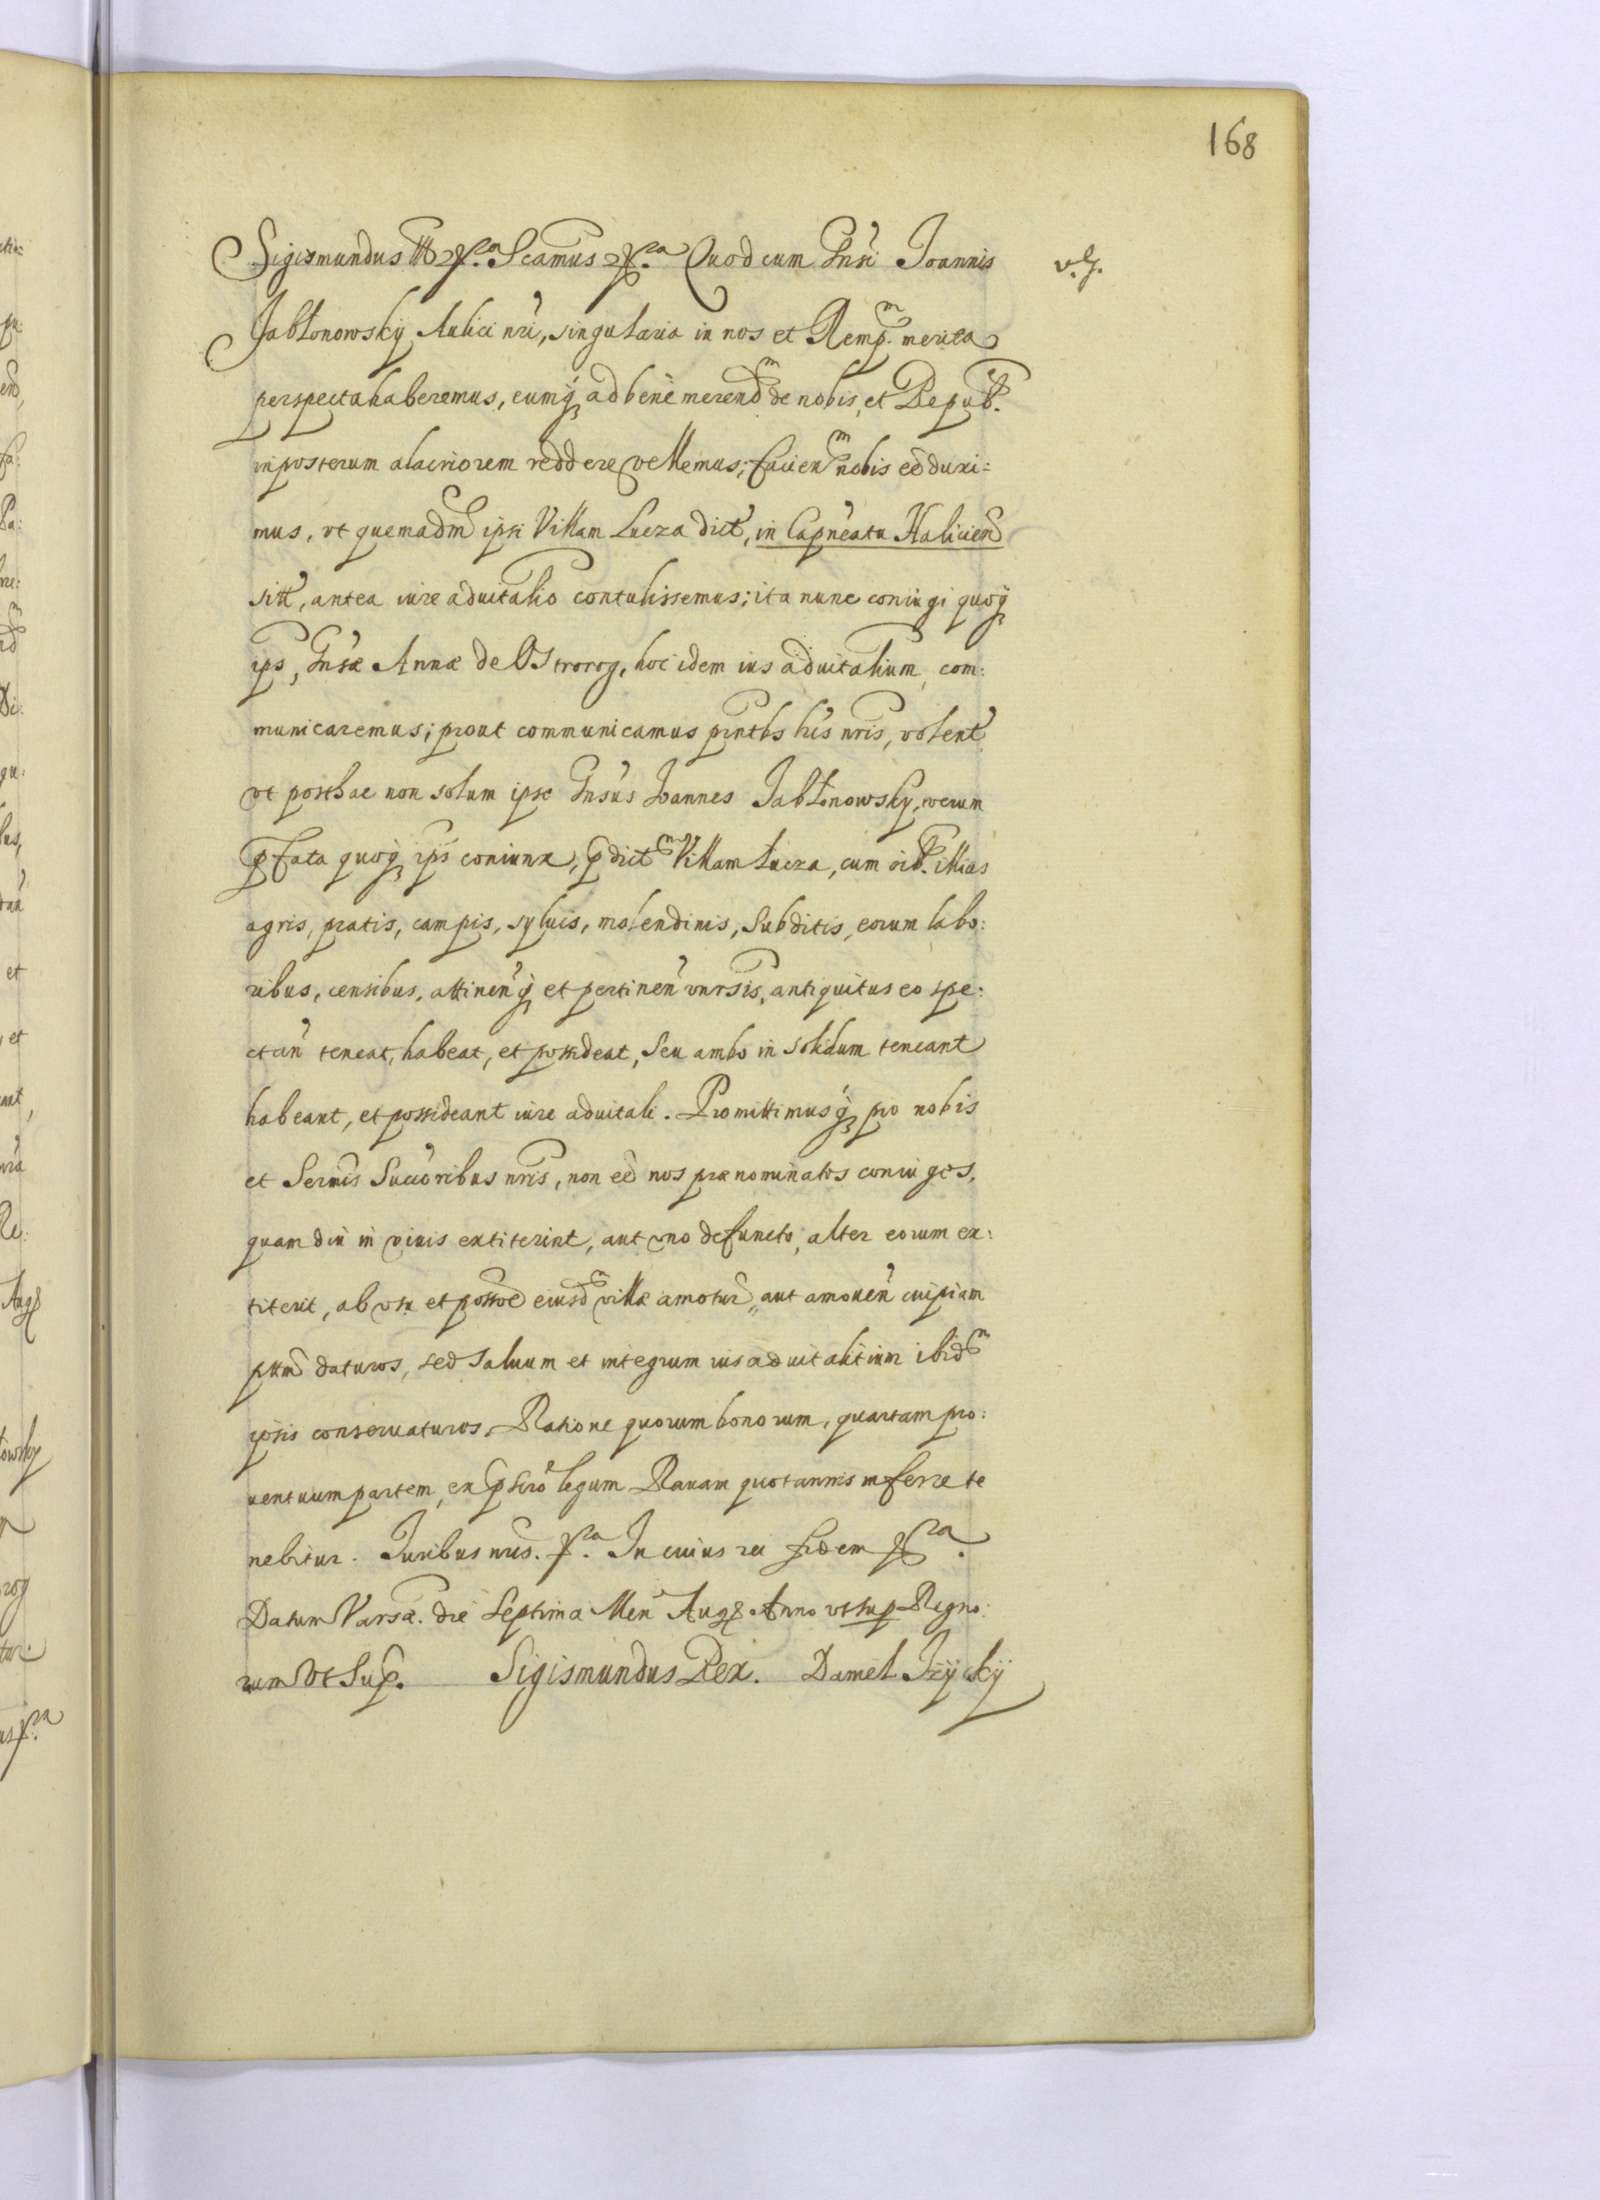 168
Sigismundus III etc.ra Scamus etc.ra Quod cum Gnsi Joannis
v. g.
Jabłonowskÿ Aulici nri, singularia in nos et Remp.m merita
perspecta haberemus, eumq₃ ad bene merendm de nobis, et Repub.
inposterum alacriorem reddere vellemus; faciendm nobis eē duxi=
mus, vt quemadm ipsi Villam Łucza dict, in Capneatu Haliciem
sitt, antea iure aduitalio contulissemus; ita nunc coniugi quoq₃
ips, Gnsæ Annæ de Ostrorog, hoc idem ius aduitalium, com:
municaremus; prout communicamus pntbs lris nris, volent
vt posthac non solum ipse Gnsus Joannes Jabłonowsky, verum
pfata quoq₃ ips coniunx, pdictm Villam Łucza, cum oib. illius
agris, pratis, campis, syluis, molendinis, subditis, eorum labo:
ribus, censibus, attinenq₃ et pertinen vnrsis, antiquitus eo spe:
ctan teneat, habeat, et possideat, seu ambo in solidum teneant
habeant, et possideant iure aduitali. Promittimusq₃ pro nobis
et Sermis Succoribus nris, non eē nos prænominatos coniuges,
quamdiu in viuis extiterint, aut vno defuncto, alter eorum ex:
titerit, ab vsu et possoē eiusdm villæ amotur, aut amouen cuipiam
pttm daturos, sed saluum et integrum ius aduitalitium ibidm
ipsis conseruaturos. Ratione quorum bonorum, quartam pro:
uentuum partem, ex pscro legum Rauam quotannis inferre te
nebitur. Juribus nris. etc.ra In cuius rei fidem etc.ra
Datum Varsæ. die Septima Men Aug. Anno vt sup Regno:
rum Vt Sup. Sigismundus Rex. Daniel Jzÿckÿ